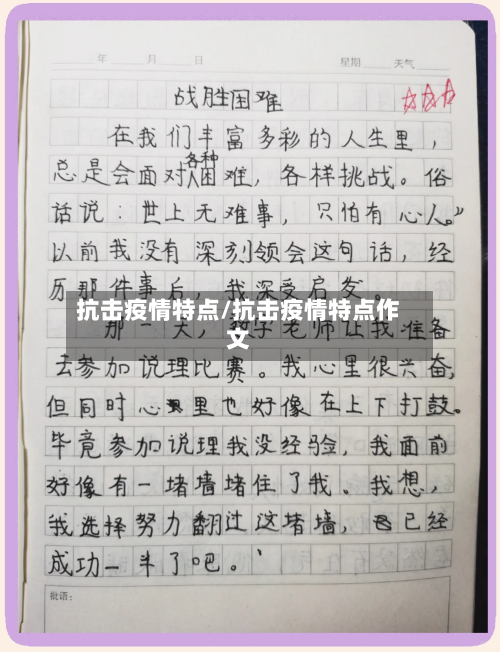 年 月 日 星期 天气
战胜困难
在我们丰富多彩的人生里，
总是会面对各种困难，各样挑战。俗
话说：世上无难事，只怕有心人。”
以前我没有深刻领会这句话，经
历那件事后，我深受启发
抗击疫情特点/抗击疫情特点作
文
那一天，数学老师让我准备
去参加说理比赛。我心里很兴奋，
但同时心里也好像在上下打鼓。
毕竟参加说理我没经验，我面前
好像有一堵墙堵住了我。我想，
我选择努力翻过这堵墙，已经
成功一半了吧。
批语：